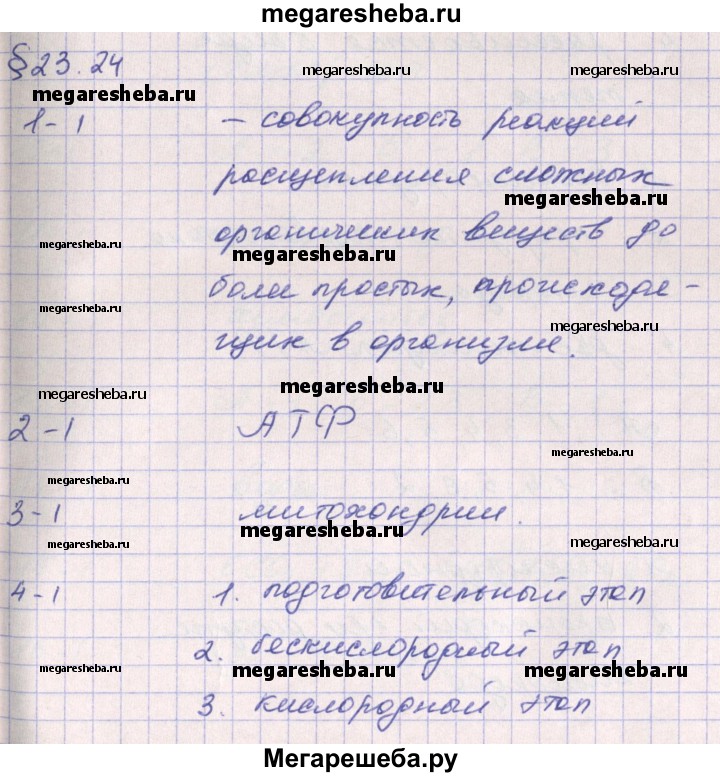 megaresheba.ru
§ 23.24
megaresheba.ru megaresheba.ru
megaresheba.ru
1-1 - совокупность реакций
расщепления сложных
megaresheba.ru
органических веществ до
megaresheba.ru megaresheba.ru
более простых, происходя-
megaresheba.ru megaresheba.ru
щих в организме.
megaresheba.ru megaresheba.ru
2-1 АТФ
megaresheba.ru megaresheba.ru
3-1 митохондрии.
megaresheba.ru megaresheba.ru megaresheba.ru
4-1 1. подготовительный этап
2. бескислородный этап
megaresheba.ru megaresheba.ru megaresheba.ru
3. кислородный этап
Мегарешеба.ру